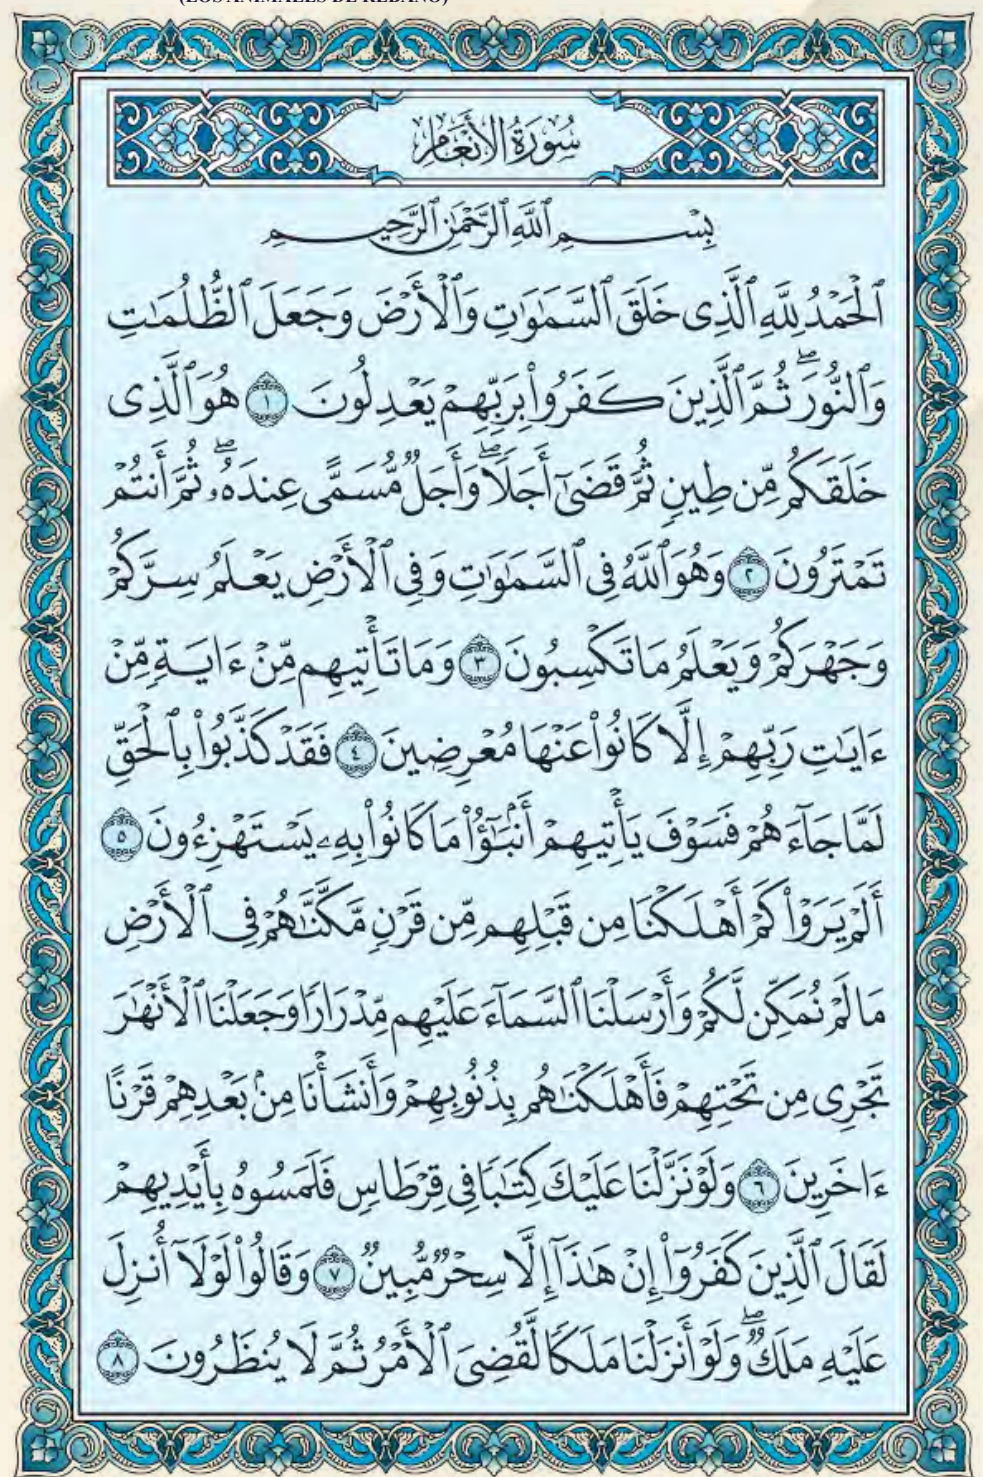 (LOS ANIMALES DE REBAÑO)
سُورَةُ الأَنعَامِ
بِسْمِ ٱللَّهِ ٱلرَّحْمَٰنِ ٱلرَّحِيمِ
ٱلْحَمْدُ لِلَّهِ ٱلَّذِى خَلَقَ ٱلسَّمَٰوَٰتِ وَٱلْأَرْضَ وَجَعَلَ ٱلظُّلُمَٰتِ
وَٱلنُّورَ ۖ ثُمَّ ٱلَّذِينَ كَفَرُوا۟ بِرَبِّهِمْ يَعْدِلُونَ ١ هُوَ ٱلَّذِى
خَلَقَكُم مِّن طِينٍ ثُمَّ قَضَىٰٓ أَجَلًا ۖ وَأَجَلٌ مُّسَمًّى عِندَهُۥ ۖ ثُمَّ أَنتُمْ
تَمْتَرُونَ ٢ وَهُوَ ٱللَّهُ فِى ٱلسَّمَٰوَٰتِ وَفِى ٱلْأَرْضِ يَعْلَمُ سِرَّكُمْ
وَجَهْرَكُمْ وَيَعْلَمُ مَا تَكْسِبُونَ ٣ وَمَا تَأْتِيهِم مِّنْ ءَايَةٍ مِّنْ
ءَايَٰتِ رَبِّهِمْ إِلَّا كَانُوا۟ عَنْهَا مُعْرِضِينَ ٤ فَقَدْ كَذَّبُوا۟ بِٱلْحَقِّ
لَمَّا جَآءَهُمْ فَسَوْفَ يَأْتِيهِمْ أَنۢبَٰٓؤُا۟ مَا كَانُوا۟ بِهِۦ يَسْتَهْزِءُونَ ٥
أَلَمْ يَرَوْا۟ كَمْ أَهْلَكْنَا مِن قَبْلِهِم مِّن قَرْنٍ مَّكَّنَّٰهُمْ فِى ٱلْأَرْضِ
مَا لَمْ نُمَكِّن لَّكُمْ وَأَرْسَلْنَا ٱلسَّمَآءَ عَلَيْهِم مِّدْرَارًا وَجَعَلْنَا ٱلْأَنْهَٰرَ
تَجْرِى مِن تَحْتِهِمْ فَأَهْلَكْنَٰهُم بِذُنُوبِهِمْ وَأَنشَأْنَا مِنۢ بَعْدِهِمْ قَرْنًا
ءَاخَرِينَ ٦ وَلَوْ نَزَّلْنَا عَلَيْكَ كِتَٰبًا فِى قِرْطَاسٍ فَلَمَسُوهُ بِأَيْدِيهِمْ
لَقَالَ ٱلَّذِينَ كَفَرُوٓا۟ إِنْ هَٰذَآ إِلَّا سِحْرٌ مُّبِينٌ ٧ وَقَالُوا۟ لَوْلَآ أُنزِلَ
عَلَيْهِ مَلَكٌ ۖ وَلَوْ أَنزَلْنَا مَلَكًا لَّقُضِىَ ٱلْأَمْرُ ثُمَّ لَا يُنظَرُونَ ٨